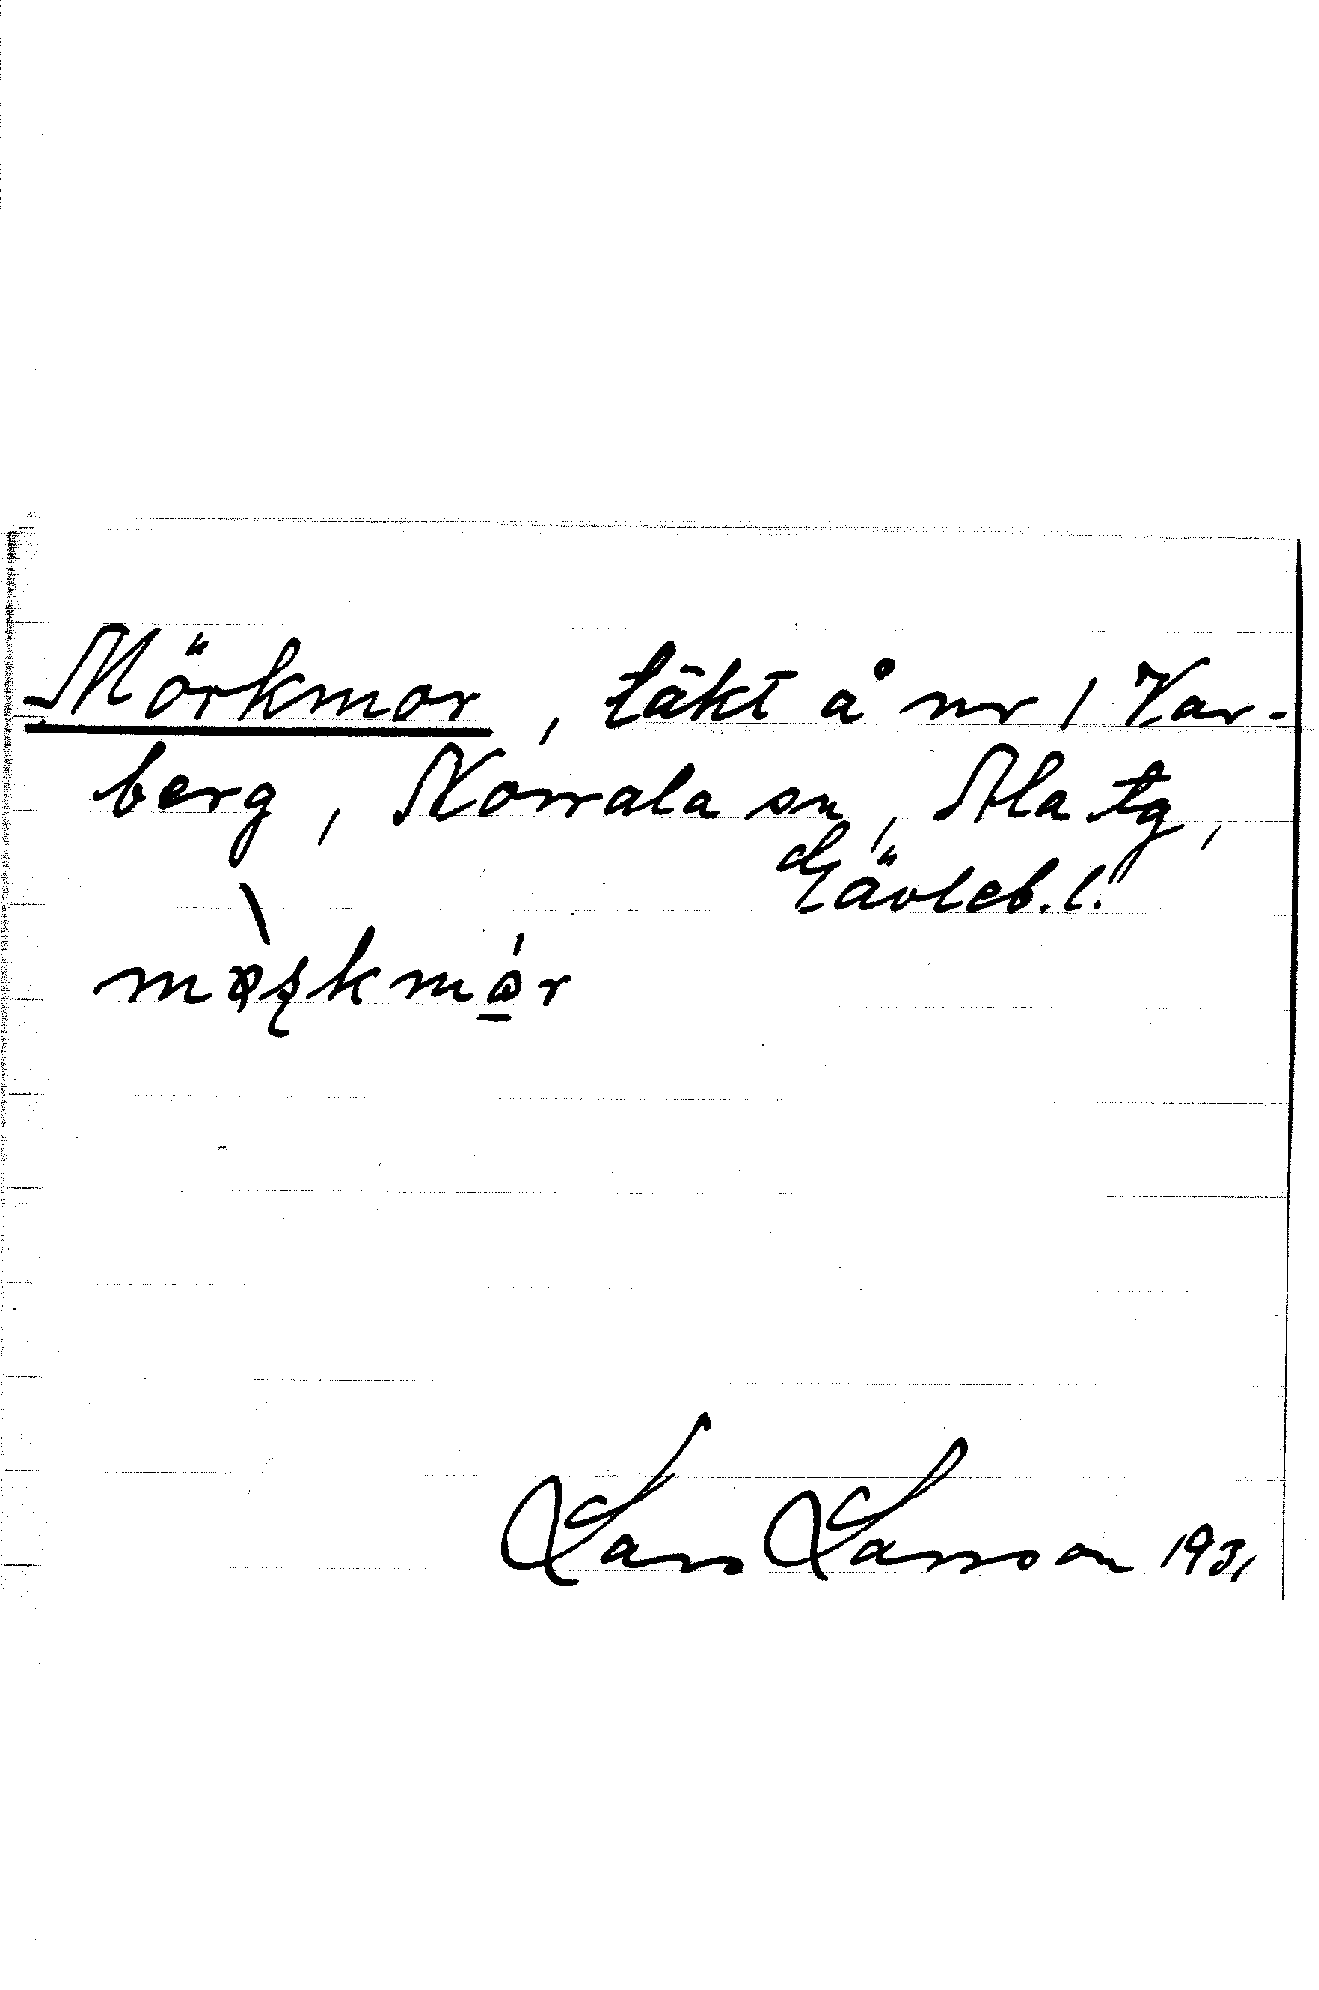 Mörkmor, täkt å nr 1 Var-
berg, Norrala sn, Ala tg,
Gävleb. l.
Lars Larsson 1931